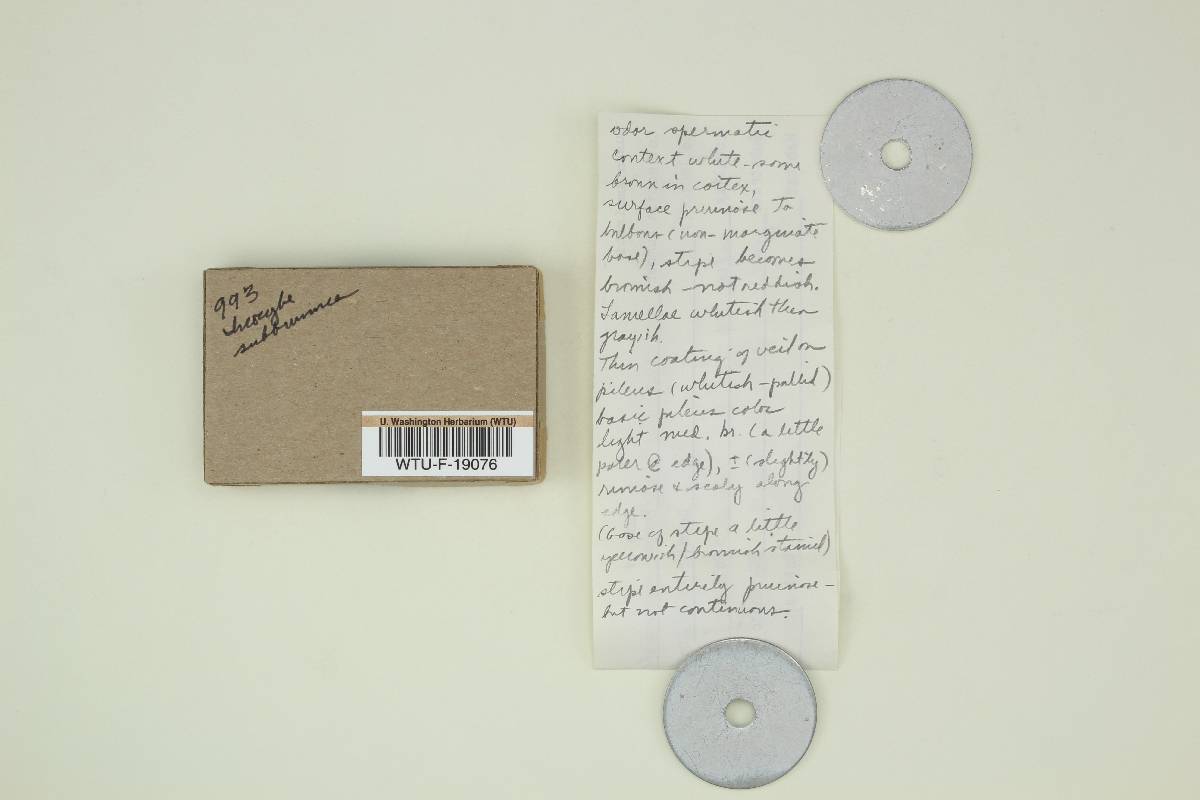 993
Inocybe
subbrunnea
U. Washington Herbarium (WTU)
WTU-F-19076
odor spermatic
context white-some
brown in cortex,
surface pruinose to
bulbous (non-marginate
base), stipe becomes
brownish - not reddish.
Lamellae whitish then
grayish.
Thin coating of veil on
pileus (whitish-pallid)
basic pileus color
light med. br. (a little
paler @ edge), ± (slightly)
rimose & scaly along
edge.
(base of stipe a little
yellowish/brownish stained)
stipe entirely pruinose-
but not continuous.